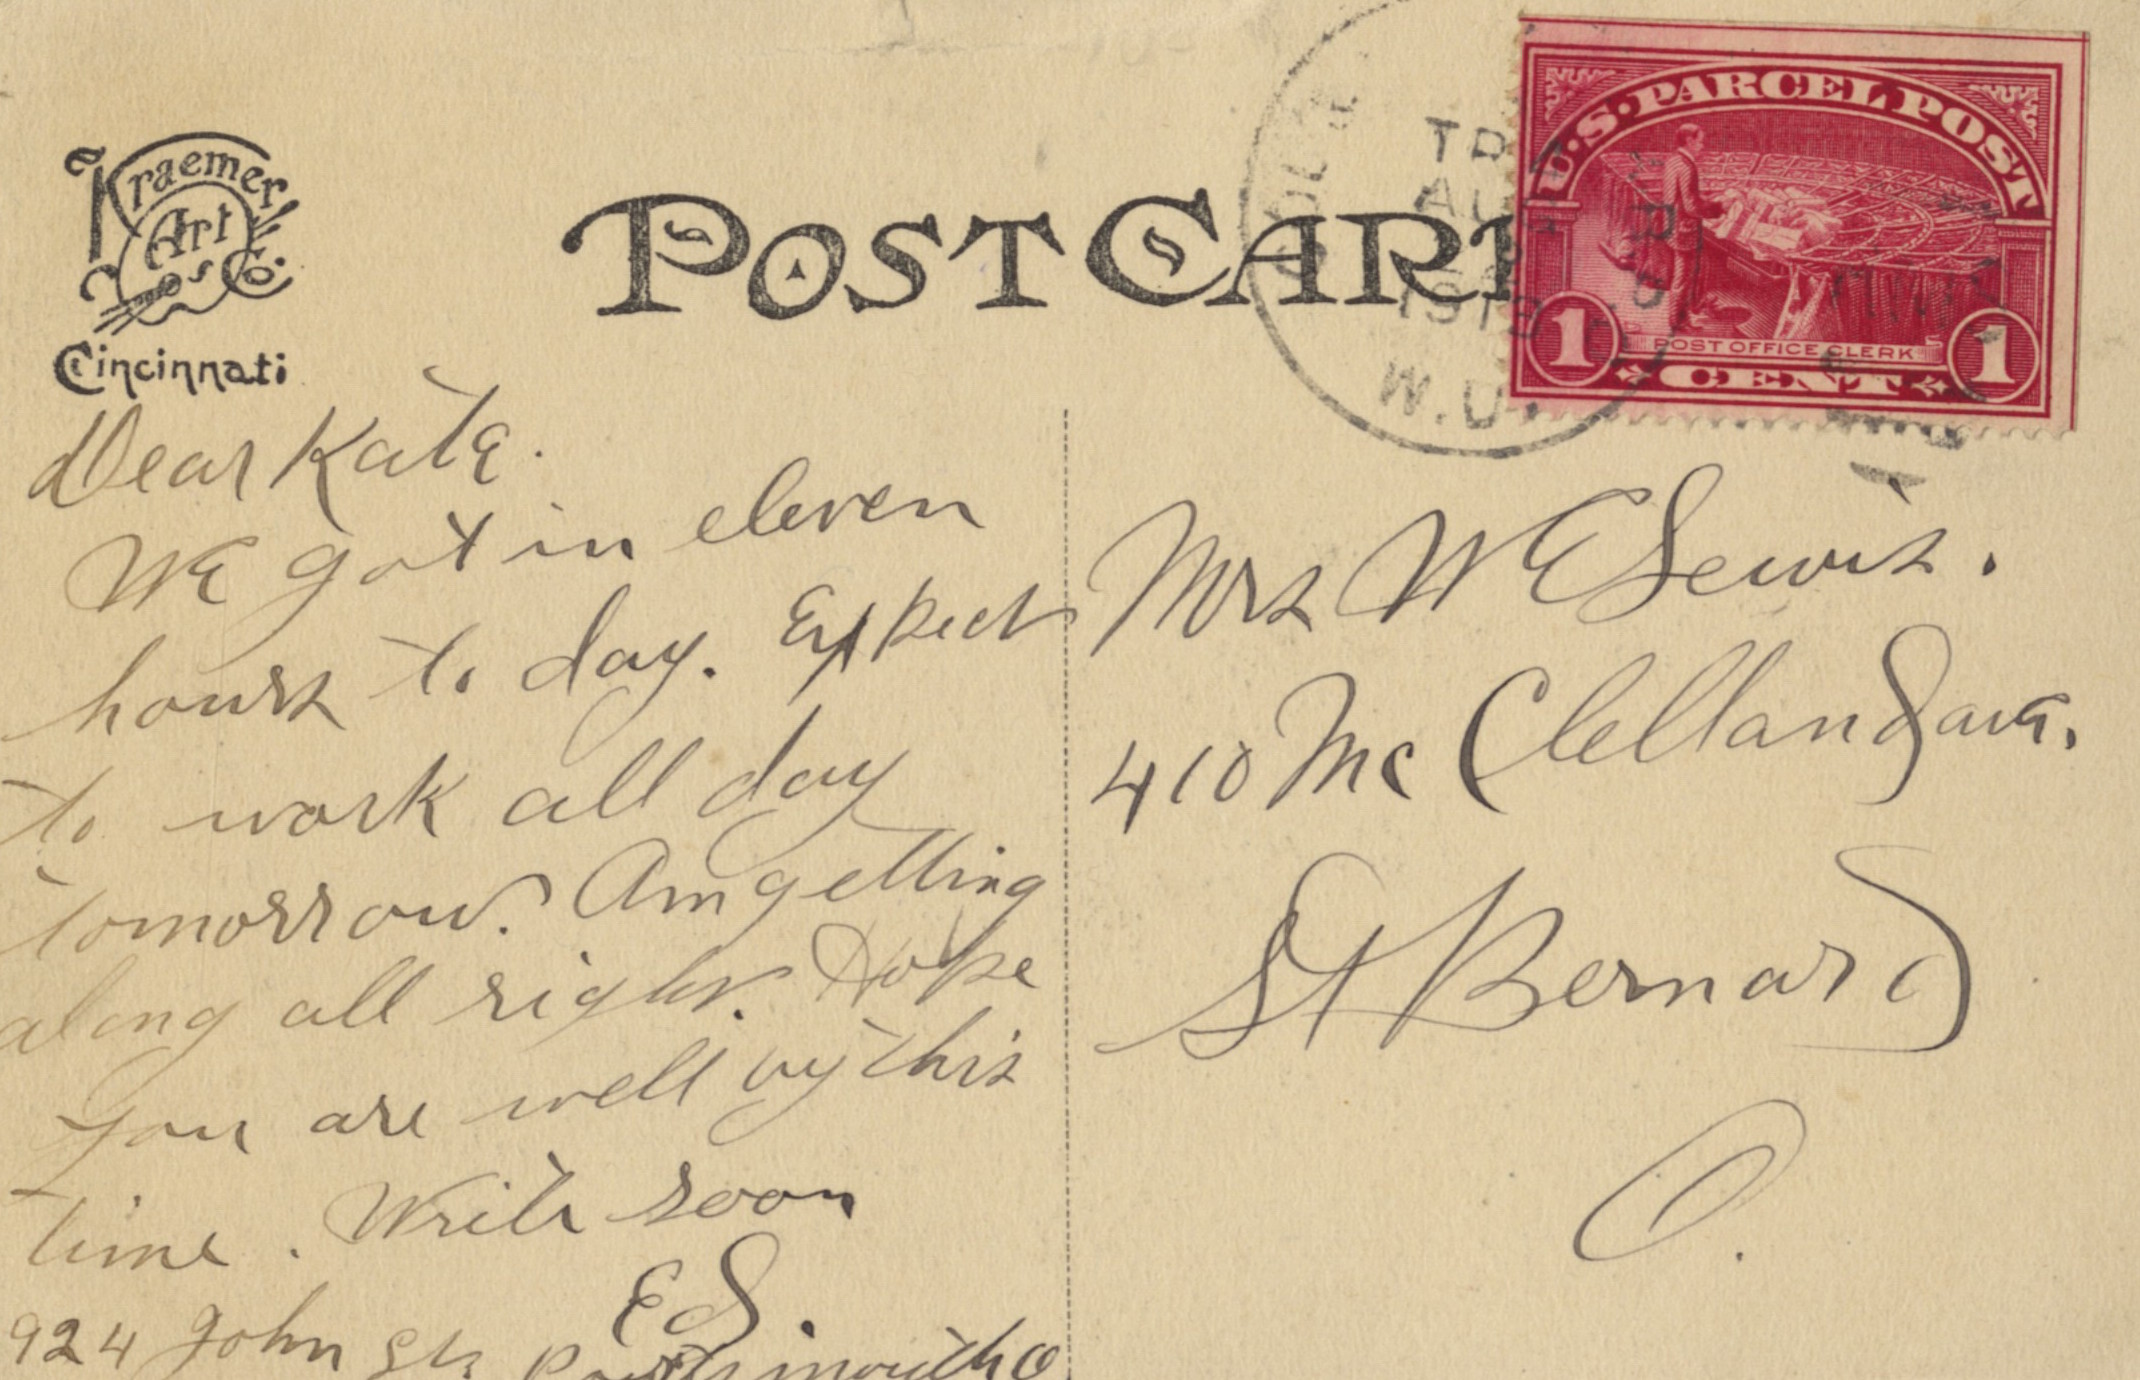 Kraemer
Art
Co.
Cincinnati
POST CAR
U.S. PARCEL POST
POST OFFICE CLERK
1 CENT 1
AU
1913
W.D.
Dear Kate.
We got in eleven
hours to day. Expect
to work all day
tomorrow. Am getting
along all right. Hope
you are well by this
time. Write soon
Ed.
924 John St. Portsmouth O
Mrs W E Lewis.
410 McClelland ave.
St Bernard
O.